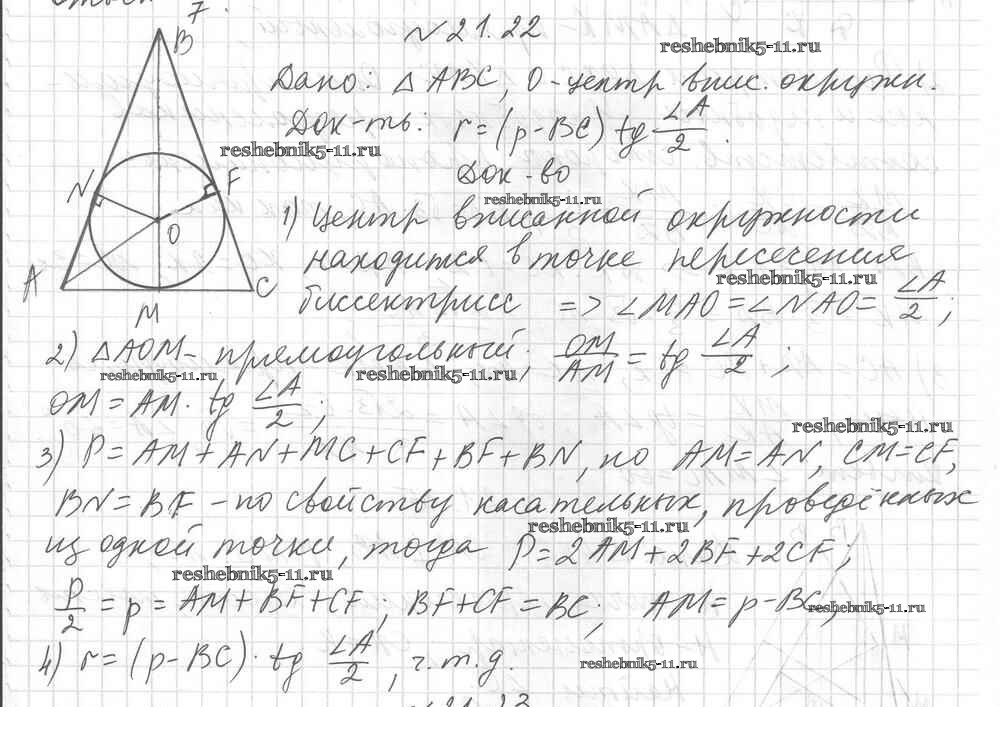 7
B
№ 21.22
reshebnik5-11.ru
Дано: △ ABC, O - центр впис. окружн.
Док-ть: r = (p - BC) tg ∠A/2.
reshebnik5-11.ru
Док-во
reshebnik5-11.ru
N F
O
A C
M
1) Центр вписанной окружности
находится в точке пересечения
reshebnik5-11.ru
биссектрисс => ∠MAO = ∠NAO = ∠A/2;
2) △AOM - прямоугольный; OM/AM = tg ∠A/2;
reshebnik5-11.ru
reshebnik5-11.ru
OM = AM · tg ∠A/2;
reshebnik5-11.ru
3) P = AM + AN + MC + CF + BF + BN, но AM = AN, CM = CF,
BN = BF - по свойству касательных, проведённых
reshebnik5-11.ru
из одной точки, тогда P = 2AM + 2BF + 2CF;
reshebnik5-11.ru
P/2 = p = AM + BF + CF; BF + CF = BC; AM = p - BC;
reshebnik5-11.ru
4) r = (p - BC) · tg ∠A/2, ч.т.д.
reshebnik5-11.ru